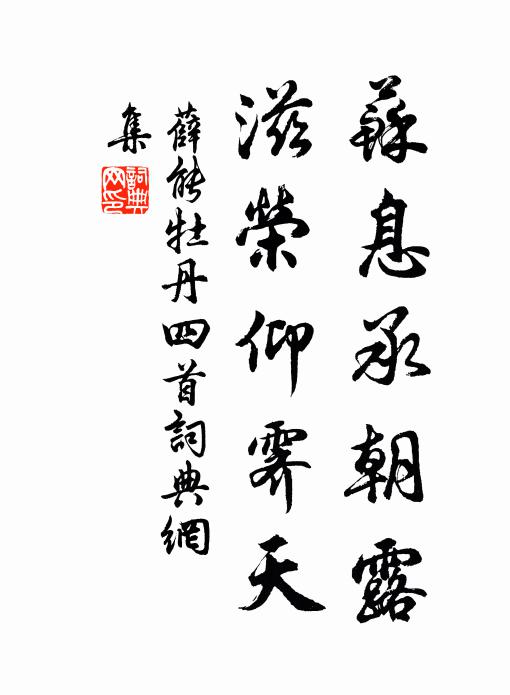 蘇息承朝露
滋榮仰霽天
薛能牡丹四首詞典網
集
詞典网印